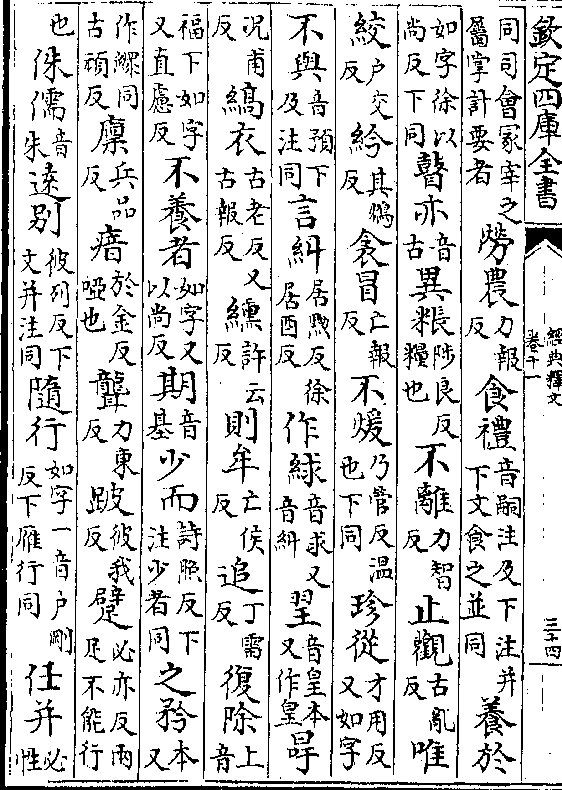 欽定四庫全書
經典釋文
卷十一
三十四
同司會冡宰之屬掌計要者 勞農 力報反 食禮 音嗣注及下注并下文食之並同 養於
如字徐以尚反下同 瞽亦 音古 異粻 陟良反糧也 不離 力智反 止觀 古亂反 唯
絞 户交反 紟 其鴆反 衾冒 亡報反 不煖 乃管反温也下同 珍從 才用反又如字
不與 音預下及注同 言糾 居黝反徐居酉反 作絿 音求又音糾 䍿 音皇本又作皇 冔
况甫反 縞衣 古老反又古報反 纁 許云反 則牟 亡侯反 追 丁雷反 復除 上音
福下如字又直慮反 不養者 如字又以尚反 期 音基 少而 詩照反下注少者同 之矜 本又
作鰥同古頑反 廪 兵品反 瘖 於金反啞也 聾 力東反 跛 彼我反 躄 必亦反兩足不能行
也 侏儒 音朱 逺别 彼列反下文并注同 隨行 如字一音户剛反下雁行同 任并 必性